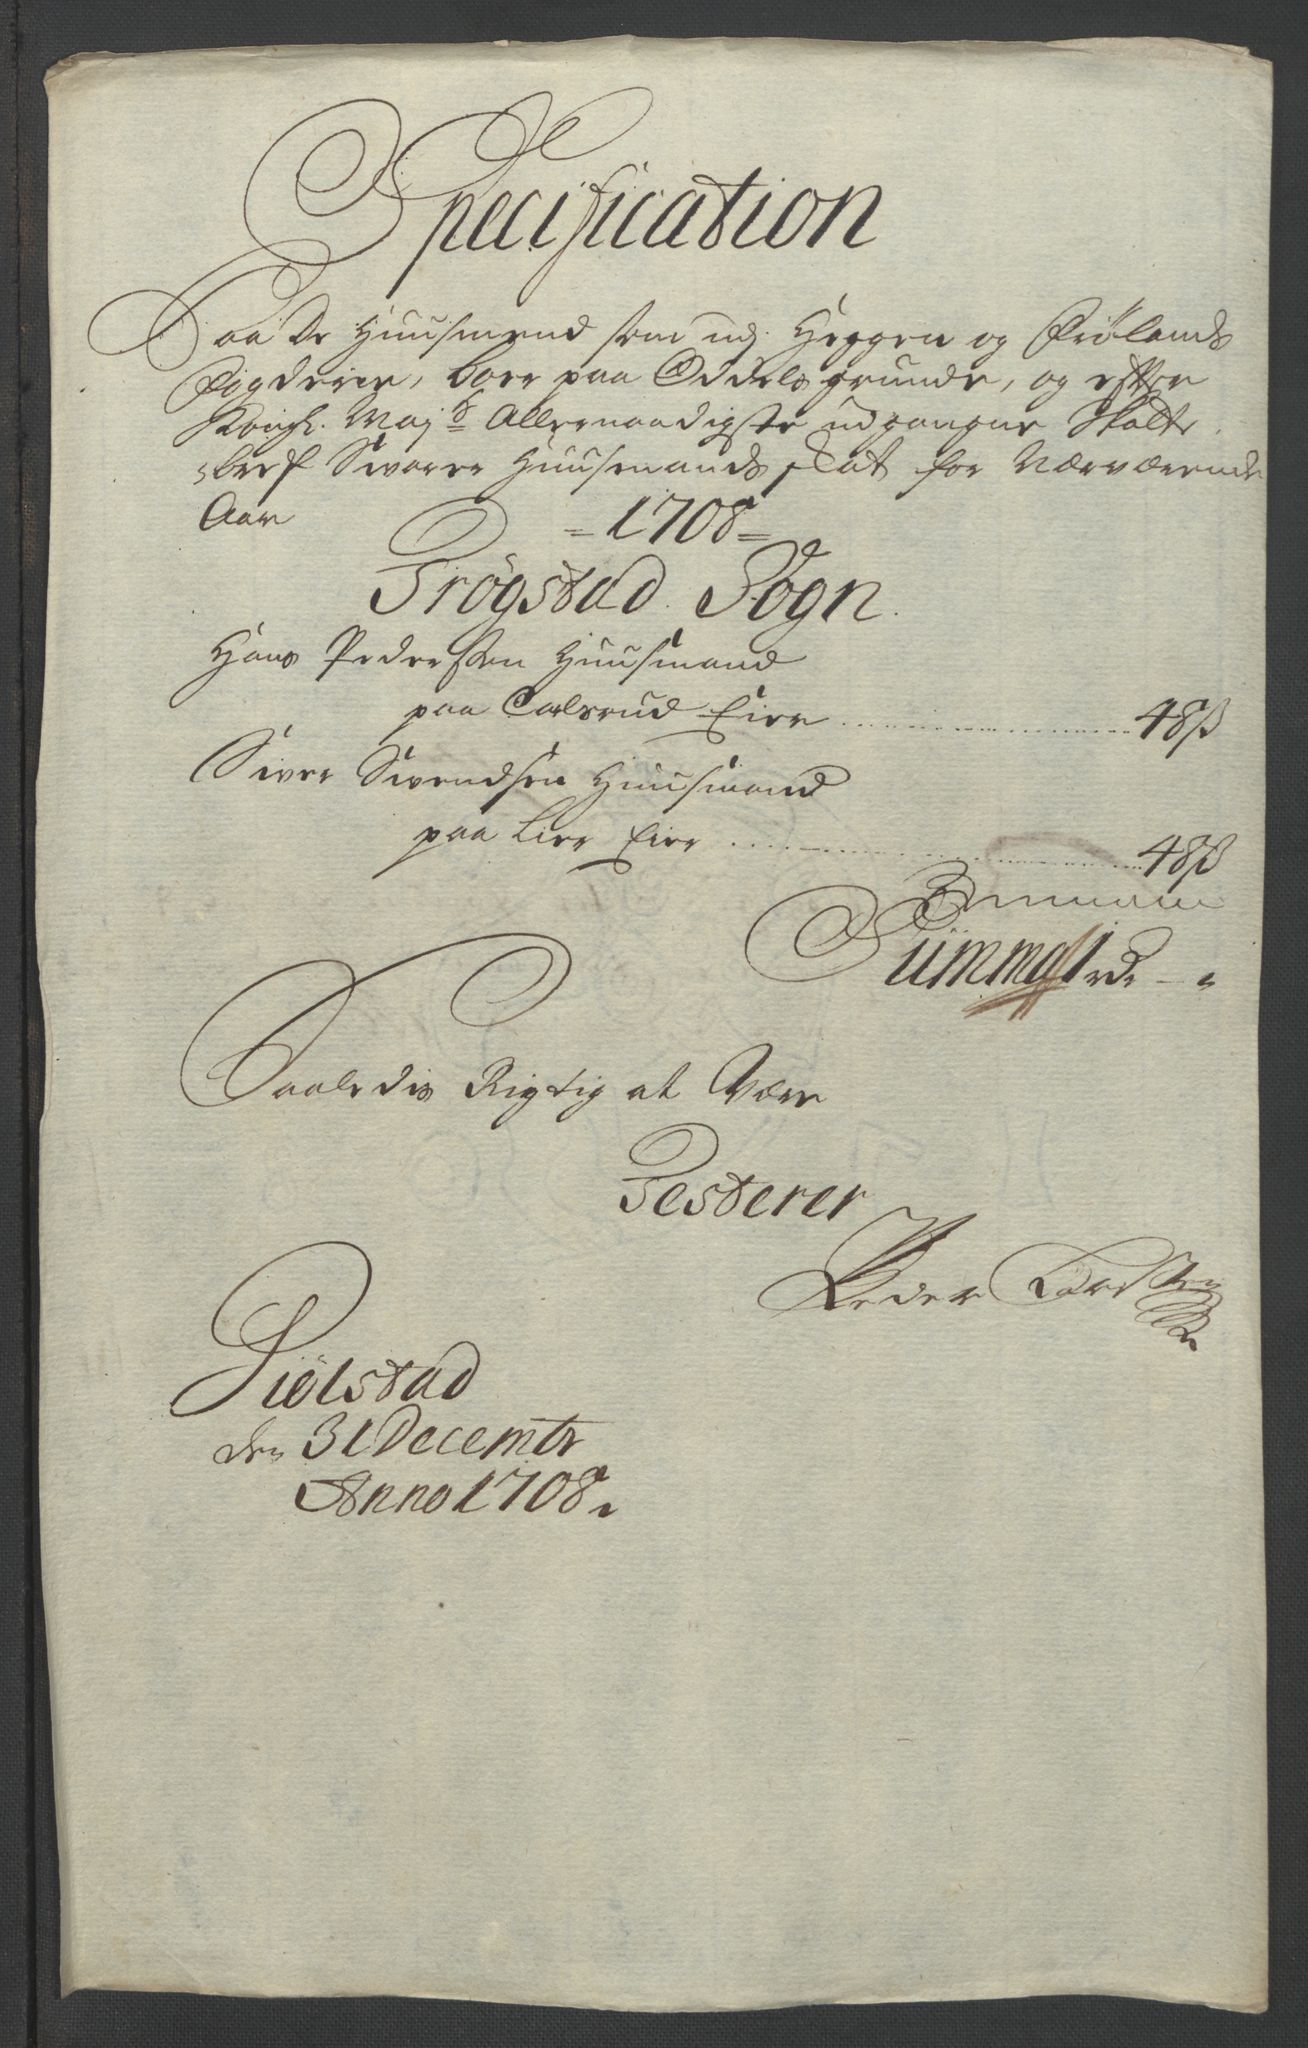 Specification
Paa De Huusmend som udj Heggen og Frølands
Fogderie, boer paa Oddels grunde, og efter
Kongl. Maj.ts Allernaadigste udgangne Skatte
bref Svarer Huusmands skat for Nærværende
Aar =1708=
Trögstad Sogn.
Hans Pederssen Huusmand
paa Carlsrud Eier ........ 48 ß
Siver Svendsen Huusmand
paa Lier Eier ........ 48 ß
Summa 1 rdr - "
Saaledis Rigtig at Være
Testerer
Peder
Siölstad
den 31 Decembr
Anno 1708